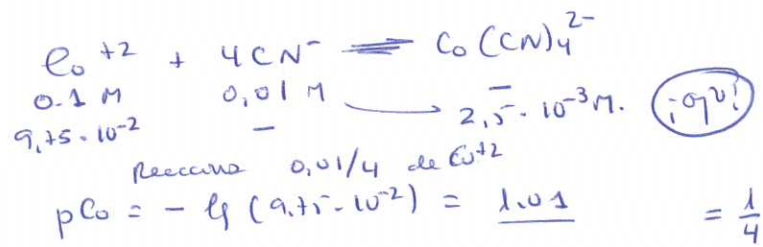 Co⁺² + 4CN⁻ ⇌ Co(CN)₄²⁻
0.1 M 0,01 M —
9,75·10⁻² — → 2,5·10⁻³ M. ¡ojo!
Reacciona 0,01/4 de Co⁺²
pCo = - lg (9,75·10⁻²) = 1.01 = 1/4